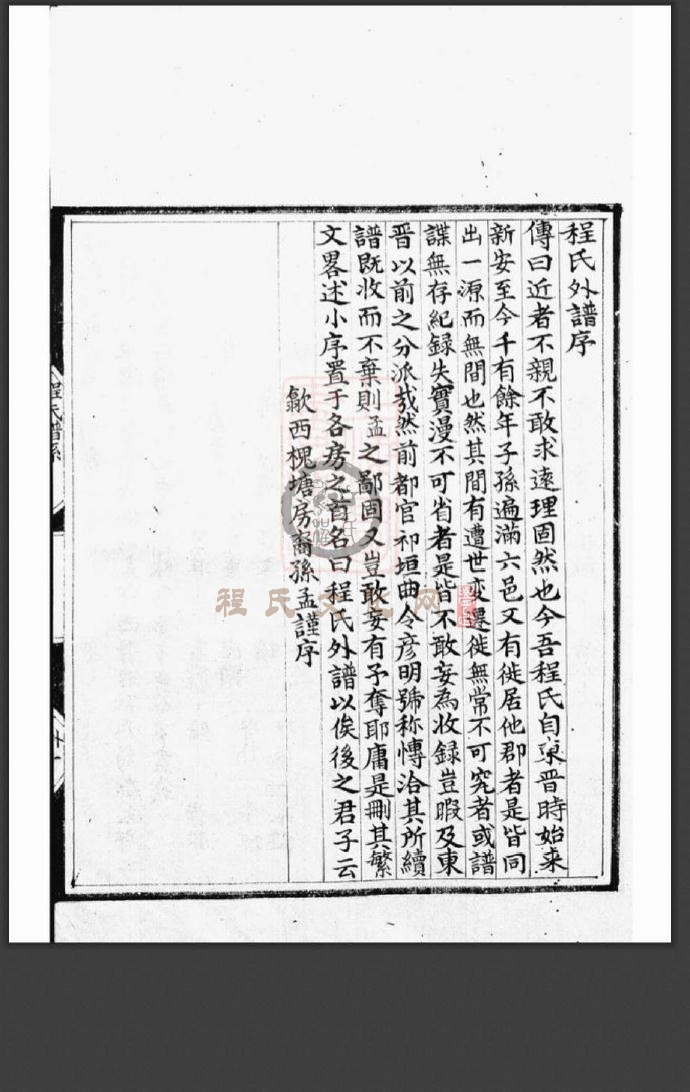 程氏外譜序
傳曰近者不親不敢求遠理固然也今吾程氏自東晋時始来
新安至今千有餘年子孫遍滿六邑又有徙居他郡者是皆同
出一源而無間也然其間有遭世变遷徙無常不可究者或譜
諜無存紀録失實漫不可省者是皆不敢妄為收録豈暇及東
晋以前之分派㢤然前都官祁垣曲令彦明號称愽洽其所續
譜既收而不棄則孟之鄙固又豈敢妄有予奪耶庸是刪其繁
文畧述小序置于各房之首名曰程氏外譜以俟後之君子云
歙西槐塘房裔孫孟謹序
程氏譜系
程氏文化网